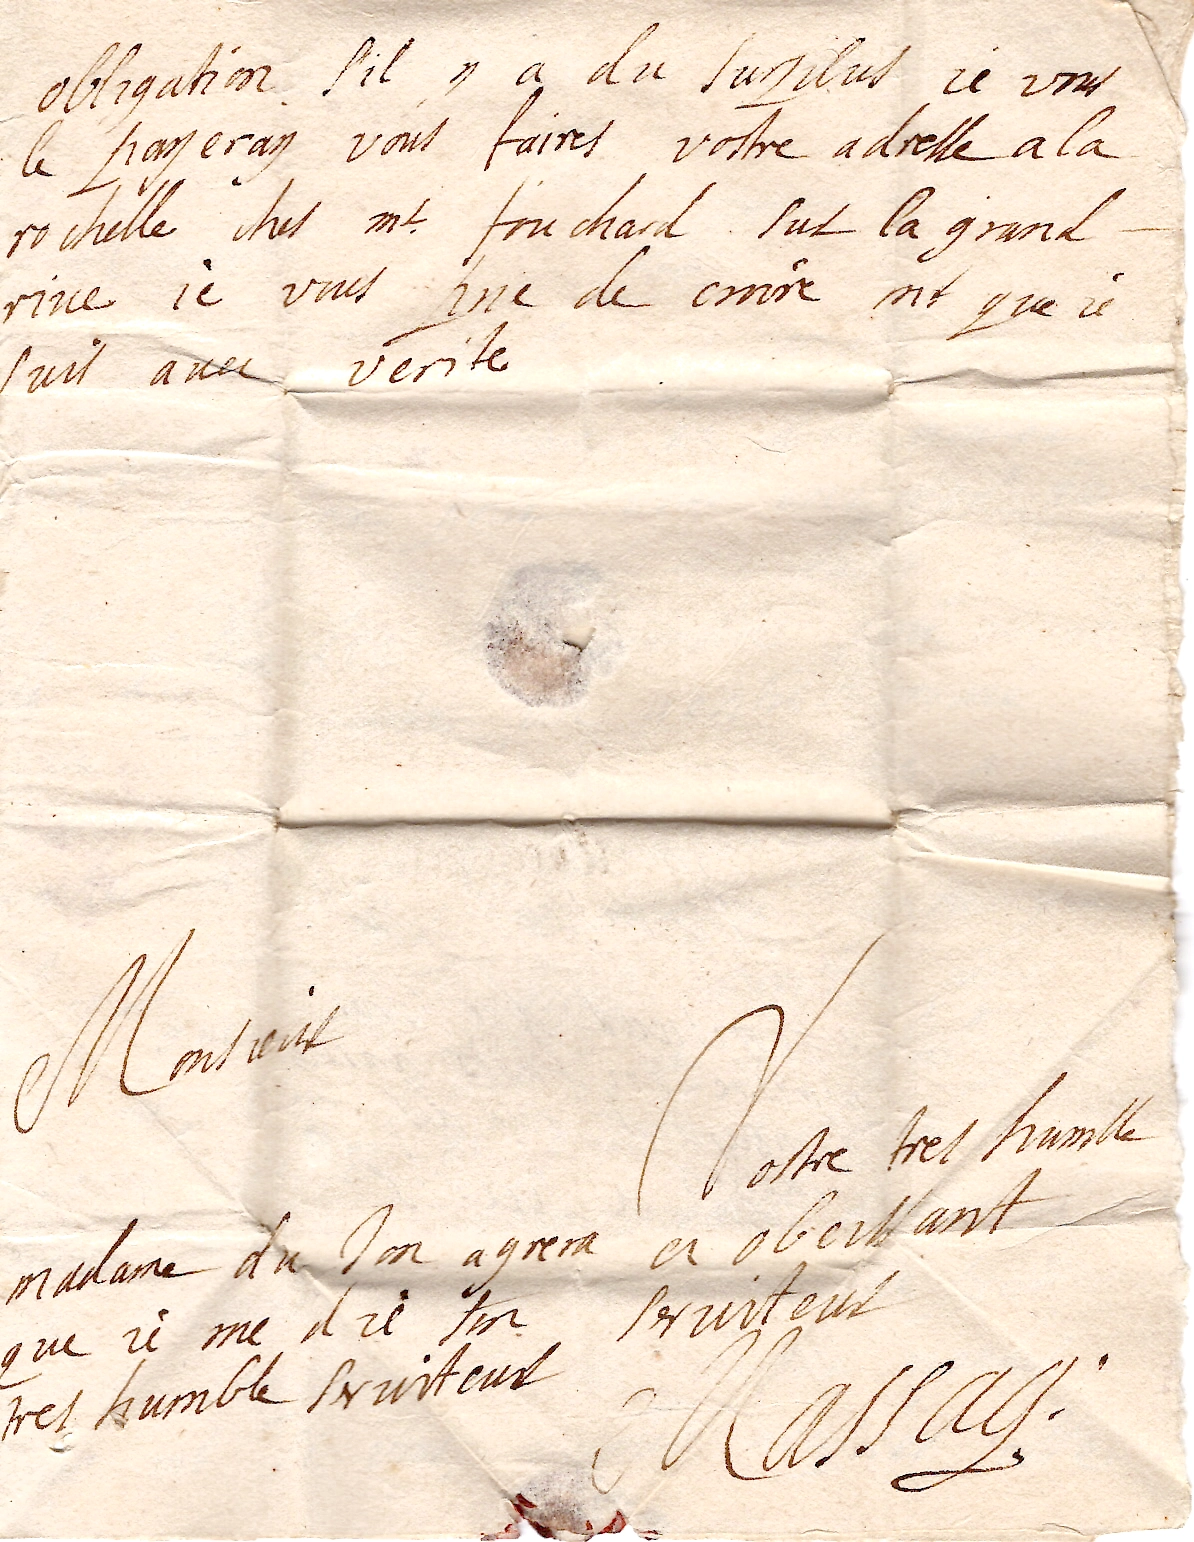 obligation s'il y a du surplus ie vous
le payeray vous faires vostre adresse a la
rochelle ches mr. fouchard sur la grand
riue ie vous prie de croire mr que ie
suis auec verite
Monsieur
Vostre tres humble
et obeissant
seruiteur
Massay.
madame du son agrera
que ie me die son
tres humble seruiteur